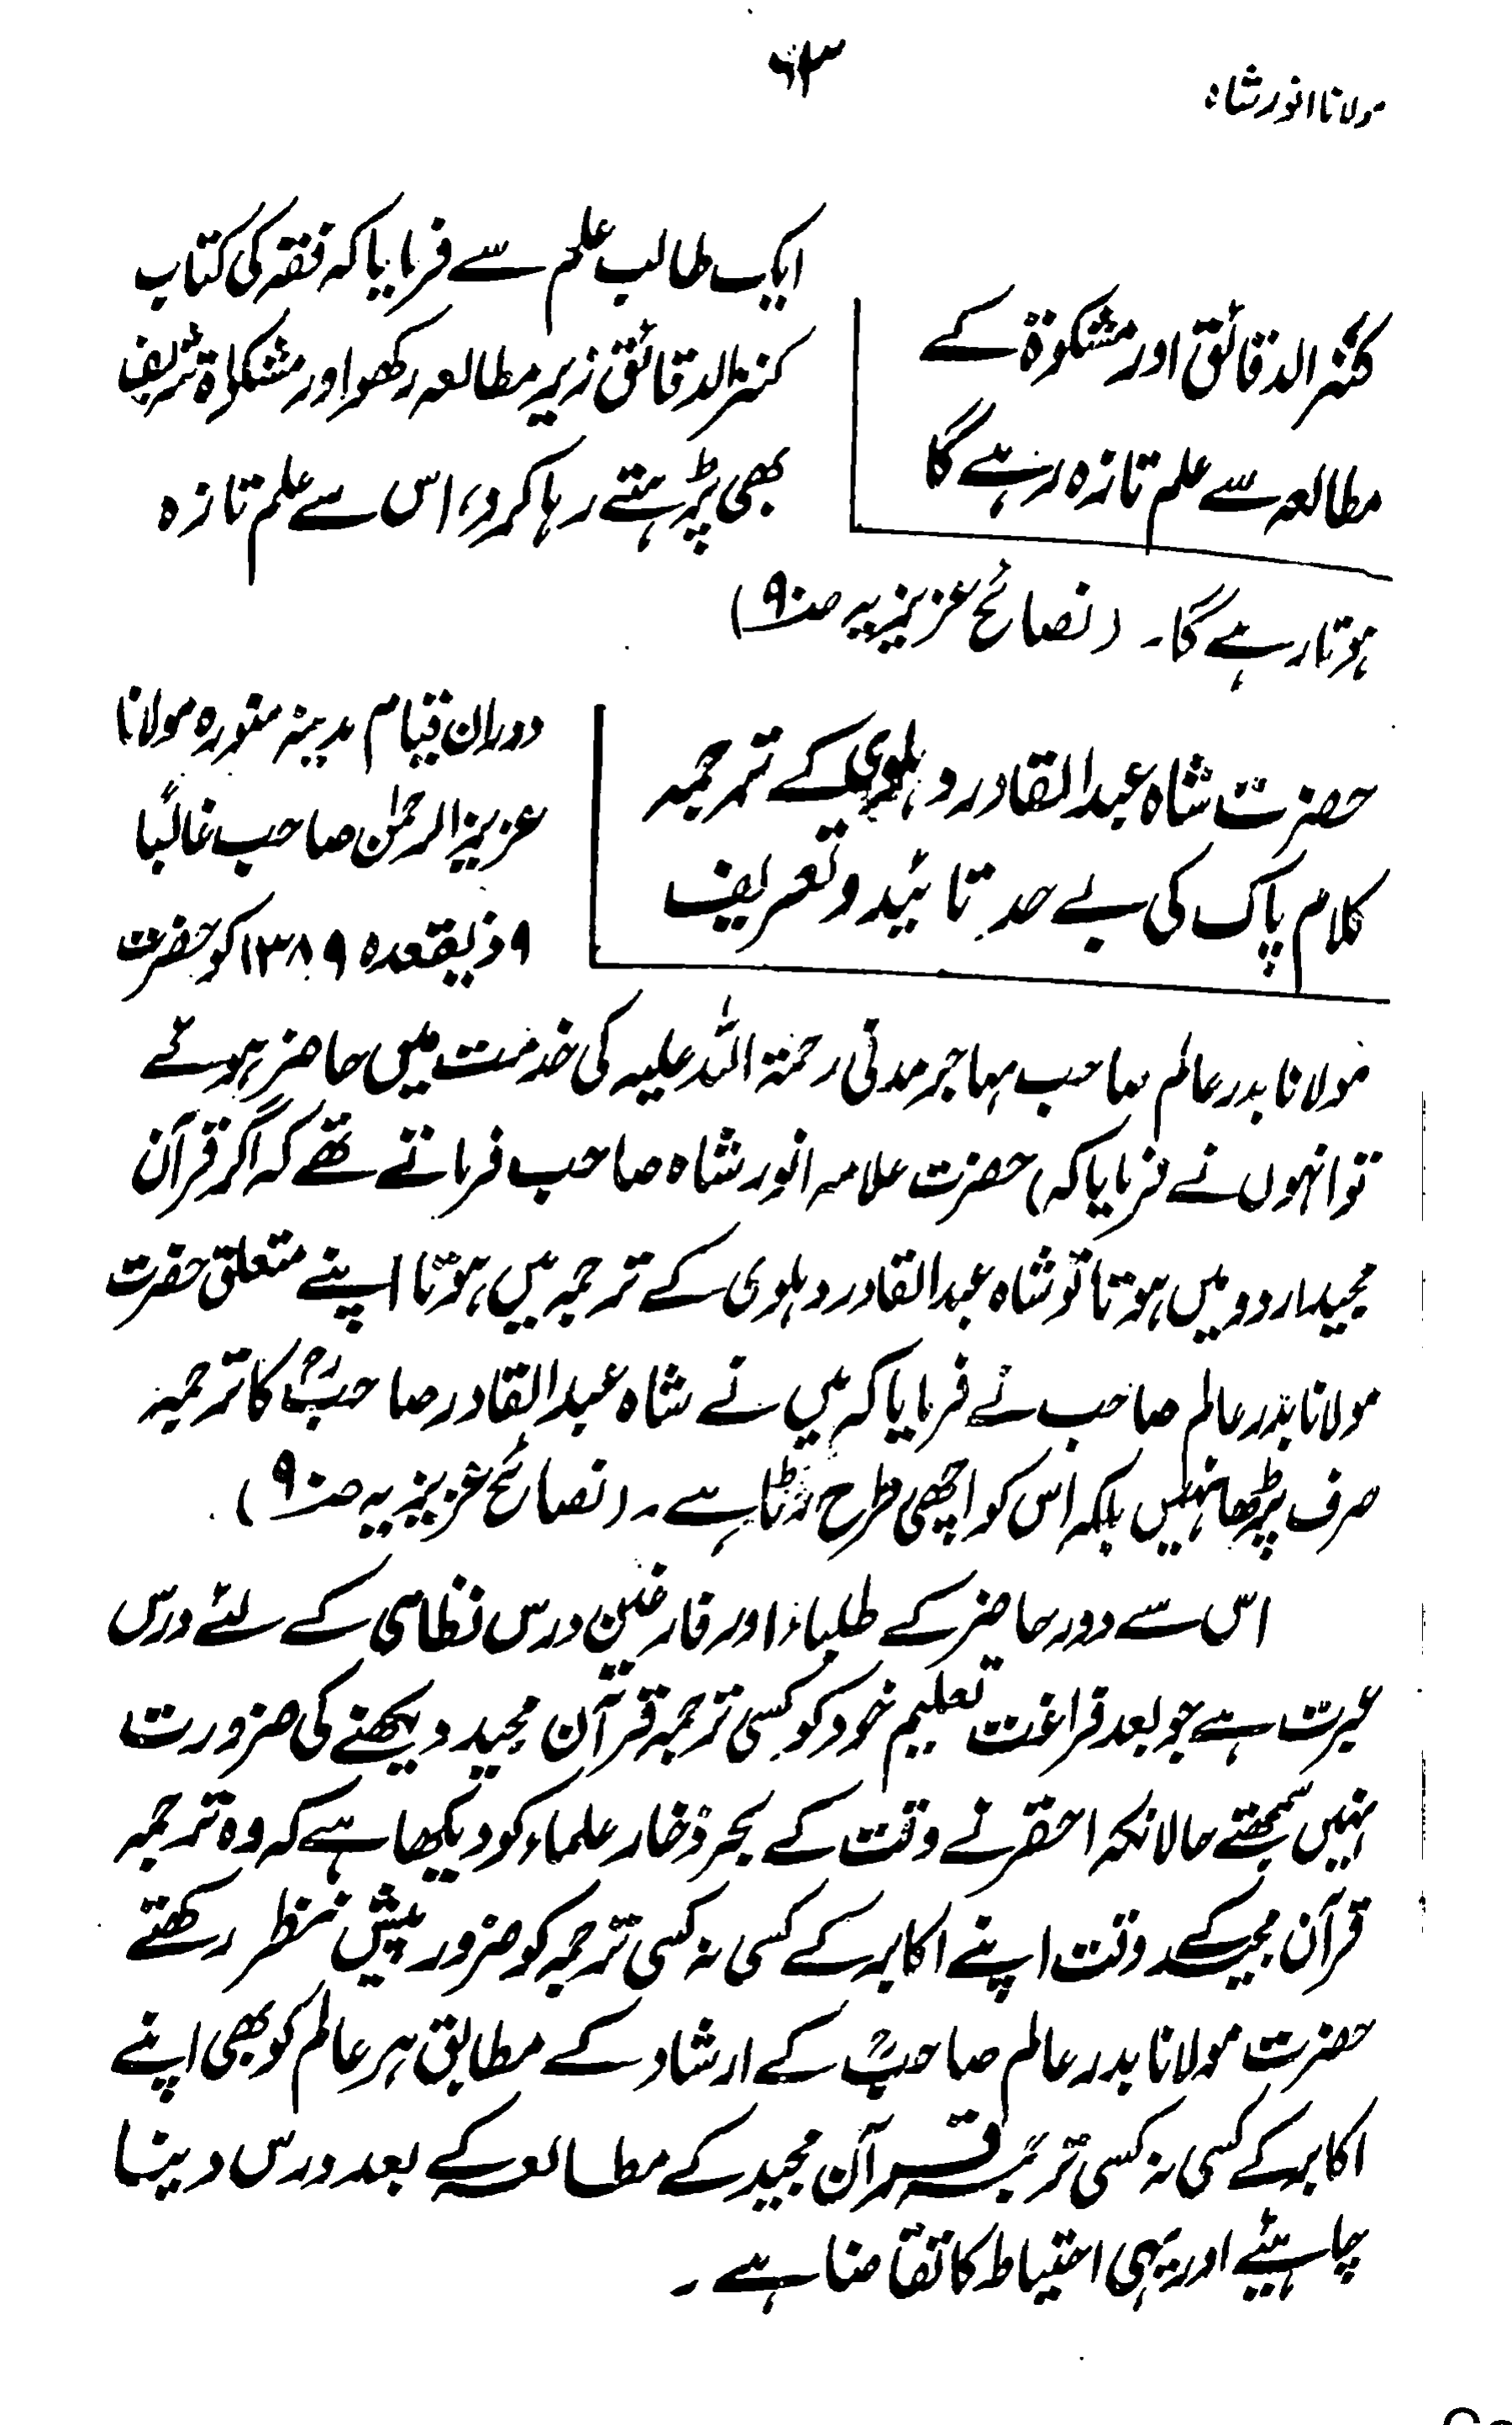 مولانا انور شاہ
۶۳
کنز الدقائق اور مشکوٰۃ کے
مطالعہ سے علم تازہ رہے گا
ایک طالب علم سے فرمایا کہ فقہ کی کتاب
کنز الدقائق زیر مطالعہ رکھو اور مشکوٰۃ شریف
بھی پڑہتے رہا کرو، اس سے علم تازہ
ہوتا رہے گا۔ (نصائح عزیزیہ صـ۹۰)
حضرت شاہ عبدالقادر دہلوی کے ترجمہ
کلام پاک کی بے حد تائید و تعریف
دوران قیام مدینہ منورہ مولانا
عزیز الرحمٰن صاحب غالباً
۹ ذیقعدہ ۱۳۸۹ کو حضرت
مولانا بدر عالم صاحب مہاجر مدنی رحمۃ اللہ علیہ کی خدمت میں حاضر ہوئے
تو انہوں نے فرمایا کہ (حضرت علامہ انور شاہ صاحب فرماتے تھے کہ اگر قرآن
مجید اردو میں ہوتا تو شاہ عبدالقادر دہلوی کے ترجمہ میں ہوتا اپنے متعلق حضرت
مولانا بدر عالم صاحب نے فرمایا کہ میں نے شاہ عبدالقادر صاحبؒ کا ترجمہ
صرف پڑھا نہیں بلکہ اس کو اچھی طرح رٹا ہے۔ (نصائح عزیزیہ صـ۹۰)
اس سے دور حاضر کے طلباء اور فارغین درس نظامی کے لئے درس
عبرت ہے جو بعد فراغت تعلیم خود کو کسی ترجمہ قرآن مجید دیکھنے کی ضرورت
نہیں سمجھتے حالانکہ احقر نے وقت کے بحر ذخار علماء کو دیکھا ہے کہ وہ ترجمہ
قرآن مجید کے وقت اپنے اکابر کے کسی نہ کسی ترجمہ کو ضرور پیش نظر رکھتے
حضرت مولانا بدر عالم صاحبؒ کے ارشاد کے مطابق ہر عالم کو بھی اپنے
اکابر کے کسی نہ کسی ترجمہ قرآن مجید کے مطالعہ کے بعد درس دینا
چاہیئے اور یہی احتیاط کا تقاضا ہے۔